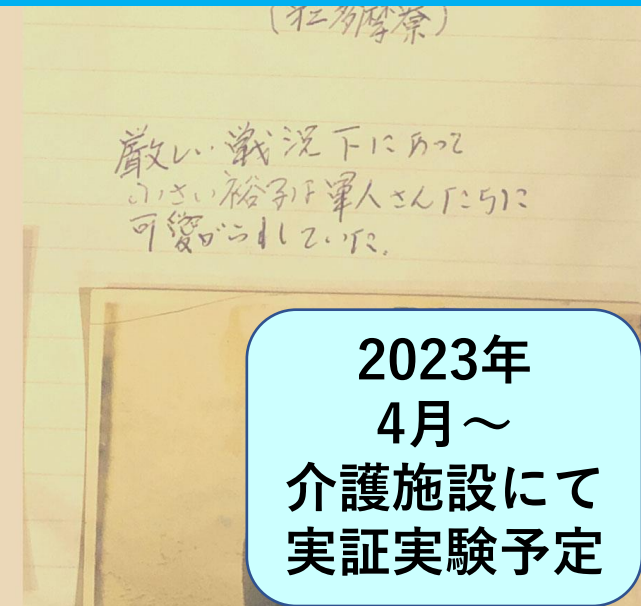 厳しい戦況下にあって
小さい裕子は軍人さんたちに
可愛がられていた。
2023年
4月～
介護施設にて
実証実験予定